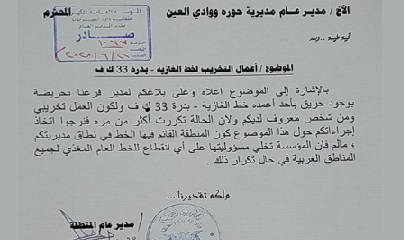 الأخ/ مدير عام مديرية حوره ووادي العين المحترم
صادر
الموضوع / أعمال التخريب لخط الغازية - بدرة 33 ك ف
بالإشارة إلى الموضوع اعلاه وعلى بلاغكم لمدير فرعنا بحريضة
بوجود حريق بأحد أعمدة خط الغازية - بدرة 33 ك ف ولكون العمل تخريبي
ومن شخص معروف لديكم ولان الحالة تكررت أكثر من مره فنرجوا اتخاذ
إجراءاتكم حول هذا الموضوع كون المنطقة القائم فيها الخط في نطاق مديريتكم
، مالم فان المؤسسة تخلي مسؤوليتها على أي انقطاع للخط العام المغذي لجميع
المناطق الغربية في حال تكرار ذلك
ولكم تقديرنا
مدير عام المنطقة